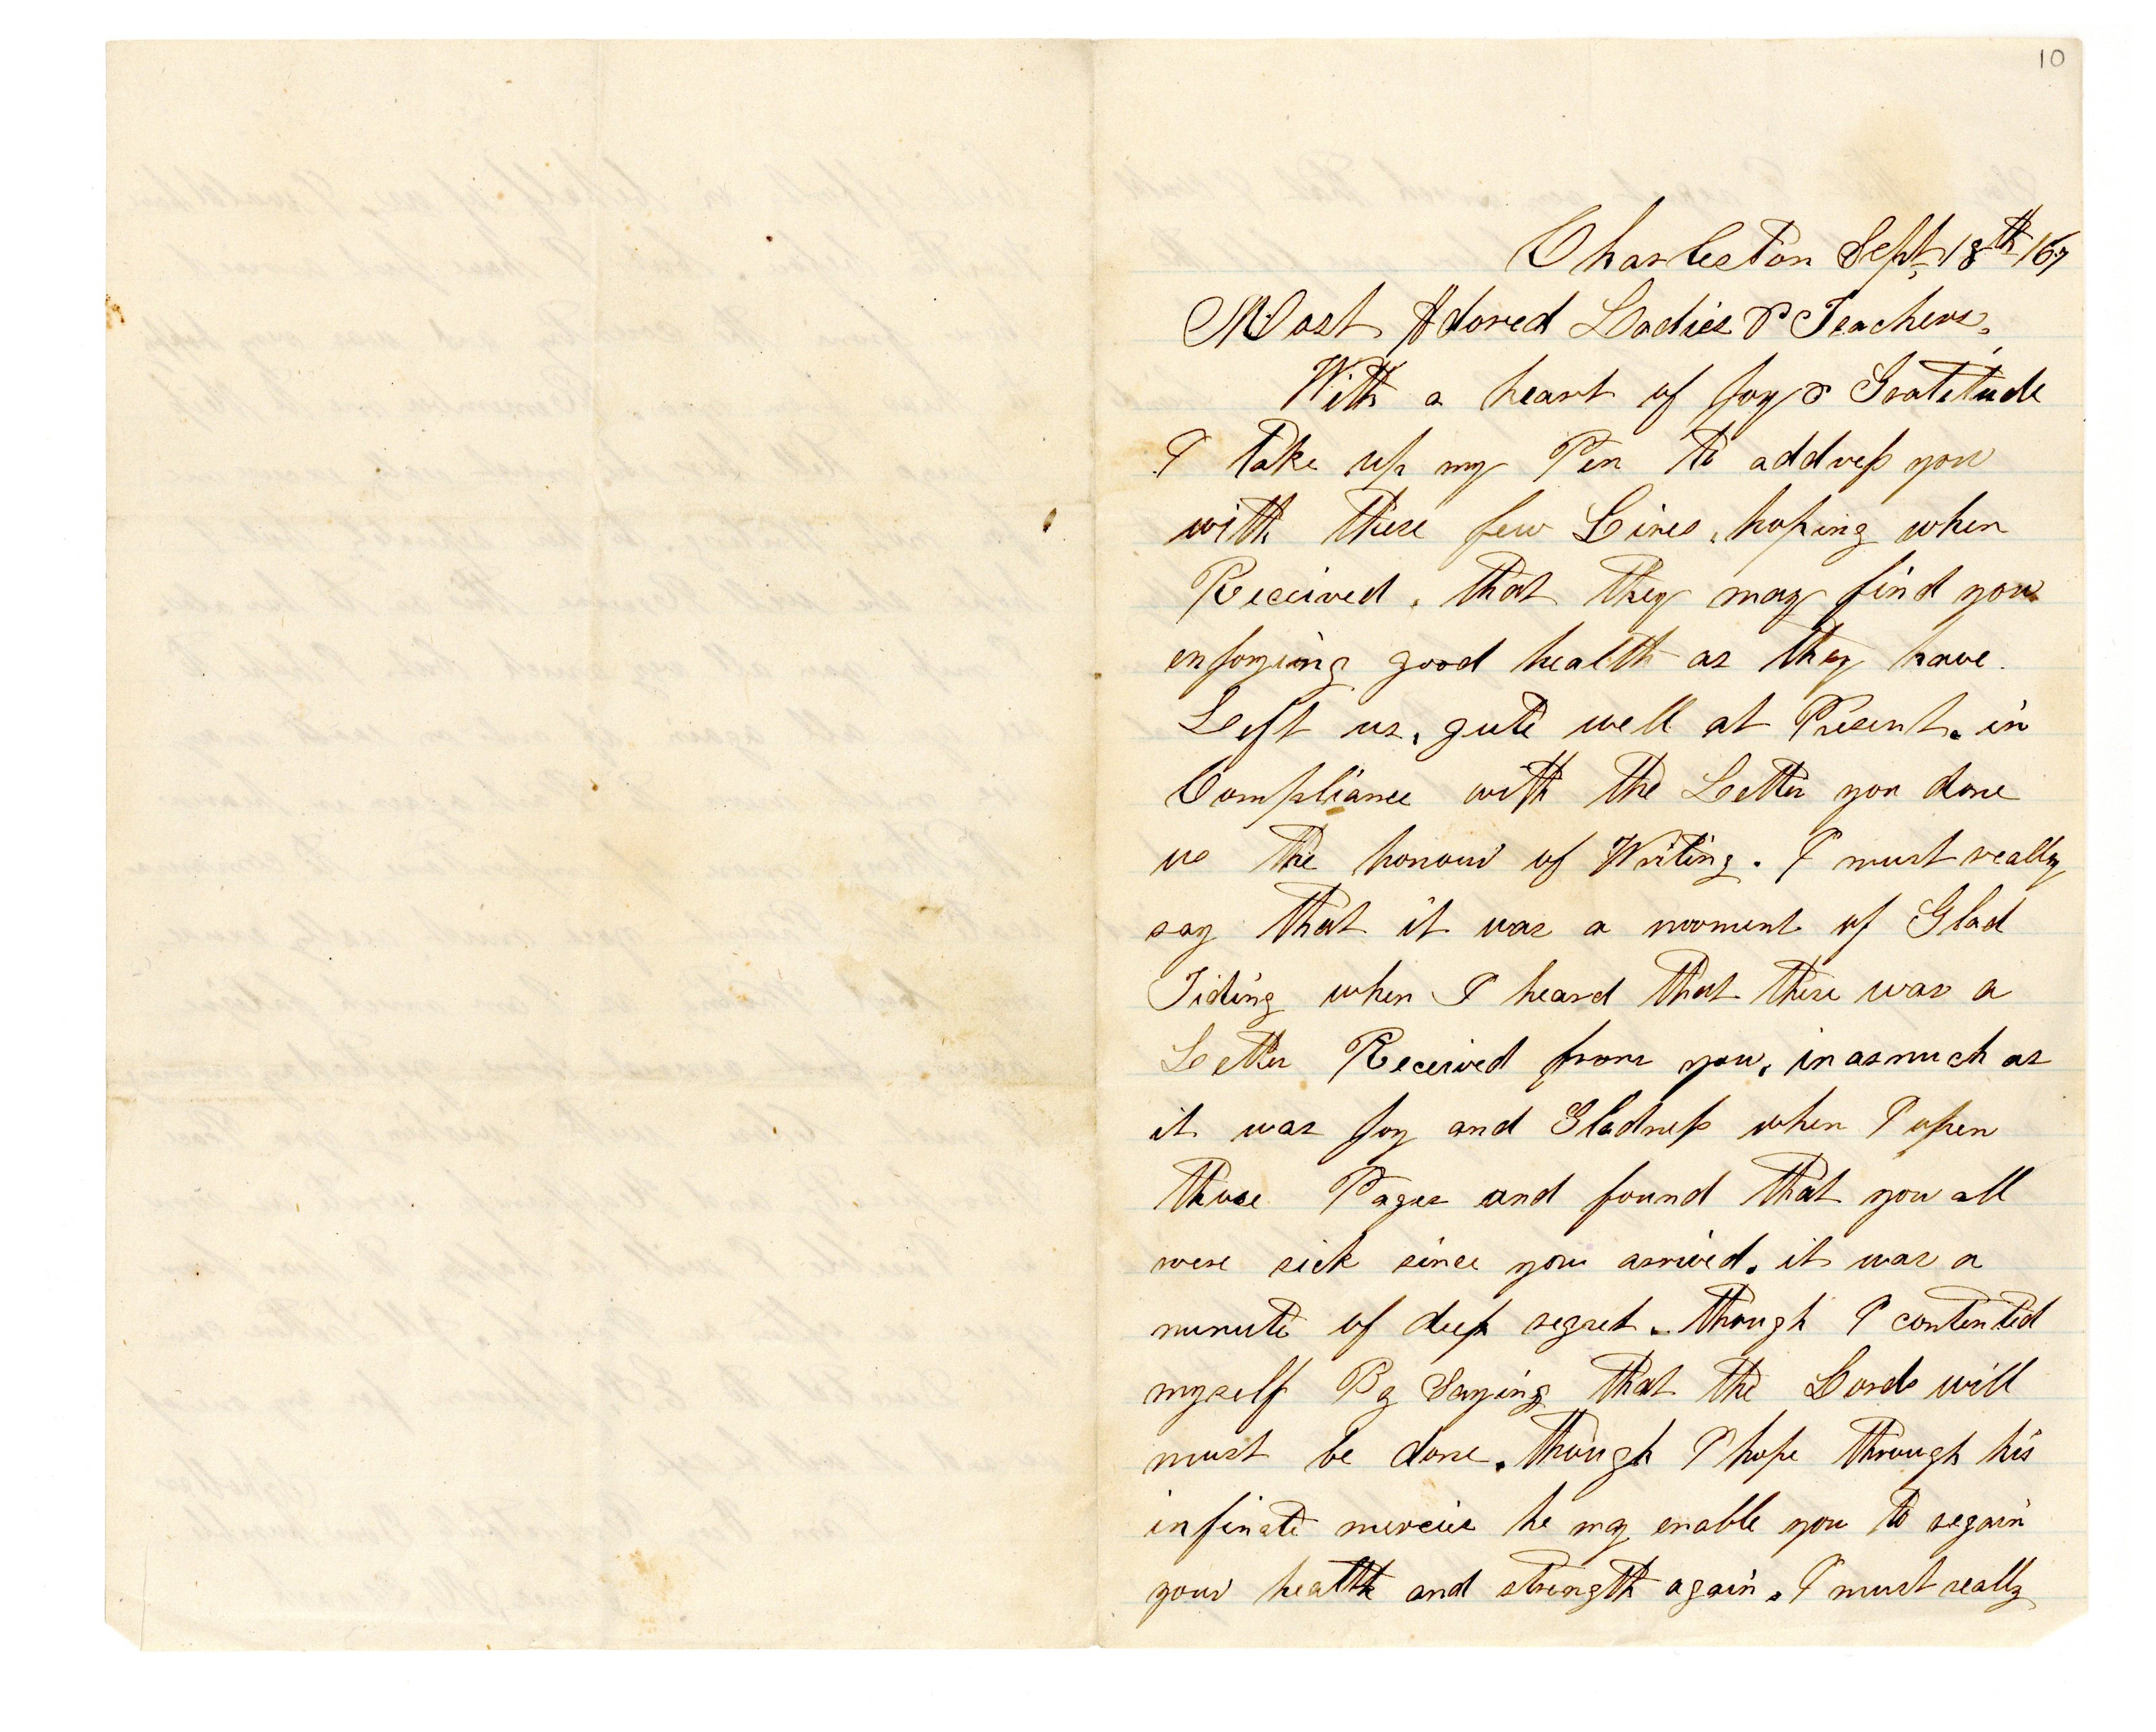 10
Charleston Sept 18th /67
Most Adored Ladies & Teachers,
With a heart of Joy & Gratitude
I take up my Pen to address you
with these few Lines, hoping when
Received, that they may find you
enjoying good health as they have
Left us, qute well at Present. in
Compliance with the Letter you done
us the honour of Writing. I must really
say that it was a moment of Glad
Tiding when I heard that there was a
Letter Received from you, in asmuch as
it was Joy and Gladness when I open
those Pages and found that you all
were sick since you arrived. it was a
minute of deep regret. though I contented
myself By Saying that the Lords will
must be done. though I hope through his
infinate mercies he may enable you to regain
your health and strength again. I must really